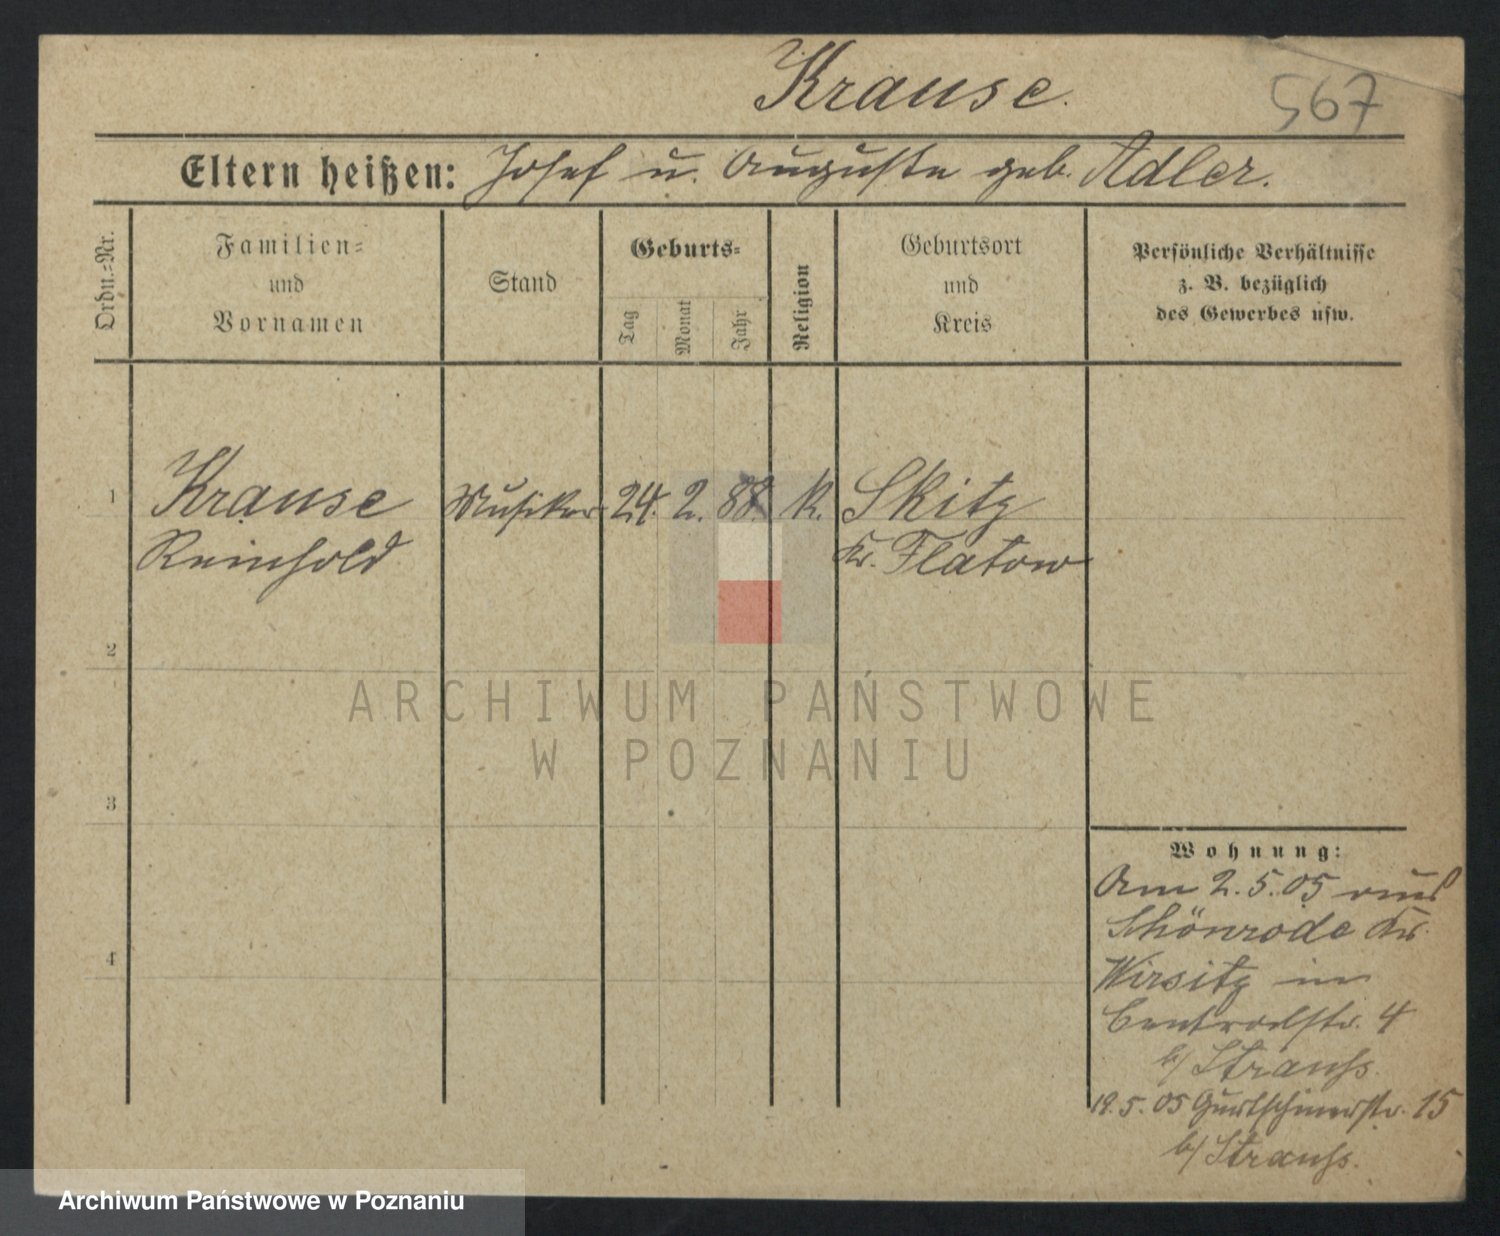 Krause.
567
Eltern heißen: Josef u. Auguste geb. Adler.
Ordn.-Nr.
Familien-
und
Vornamen
Stand
Geburts-
Tag
Monat
Jahr
Religion
Geburtsort
und
Kreis
Persönliche Verhältnisse
z. B. bezüglich
des Gewerbes usw.
1
Krause Musiker 24. 2. 88. K. Skitz
Reinhold Kr. Flatow
2
3
4
Wohnung:
Am 2.5.05 aus
Schönrode Kr.
Wirsitz in
Centralstr. 4
b/ Strauss.
19.5.05 15
b/ Strauss.
ARCHIWUM PAŃSTWOWE
W POZNANIU
Archiwum Państwowe w Poznaniu